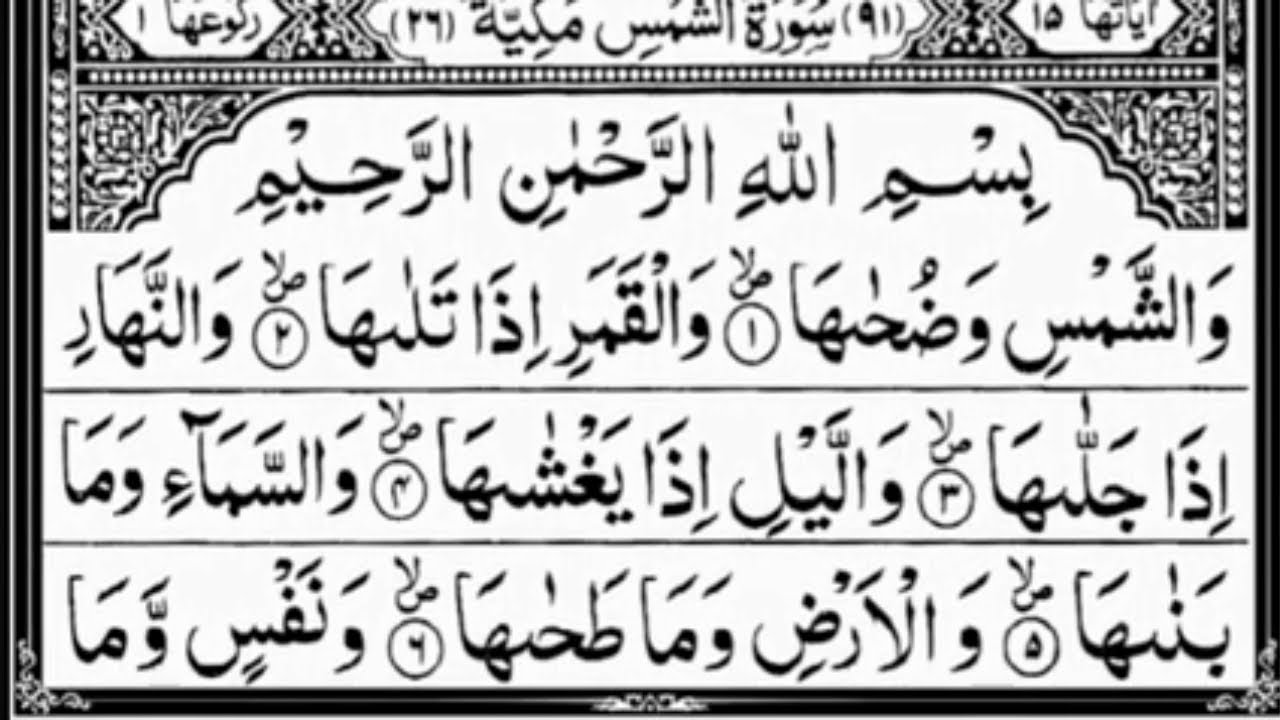 اٰيَاتُهَا ١٥ (٩١) سُوْرَةُ الشَّمْسِ مَكِّيَّةٌ (٢٦) رُكُوْعُهَا ١
بِسْمِ اللّٰهِ الرَّحْمٰنِ الرَّحِيْمِ
وَالشَّمْسِ وَضُحٰىهَا ۪ۙ ﴿۱﴾ وَالْقَمَرِ اِذَا تَلٰىهَا ۪ۙ ﴿۲﴾ وَالنَّهَارِ
اِذَا جَلّٰىهَا ۪ۙ ﴿۳﴾ وَالَّيْلِ اِذَا يَغْشٰىهَا ۪ۙ ﴿۴﴾ وَالسَّمَآءِ وَمَا
بَنٰىهَا ۪ۙ ﴿۵﴾ وَالْاَرْضِ وَمَا طَحٰىهَا ۪ۙ ﴿۶﴾ وَنَفْسٍ وَّمَا